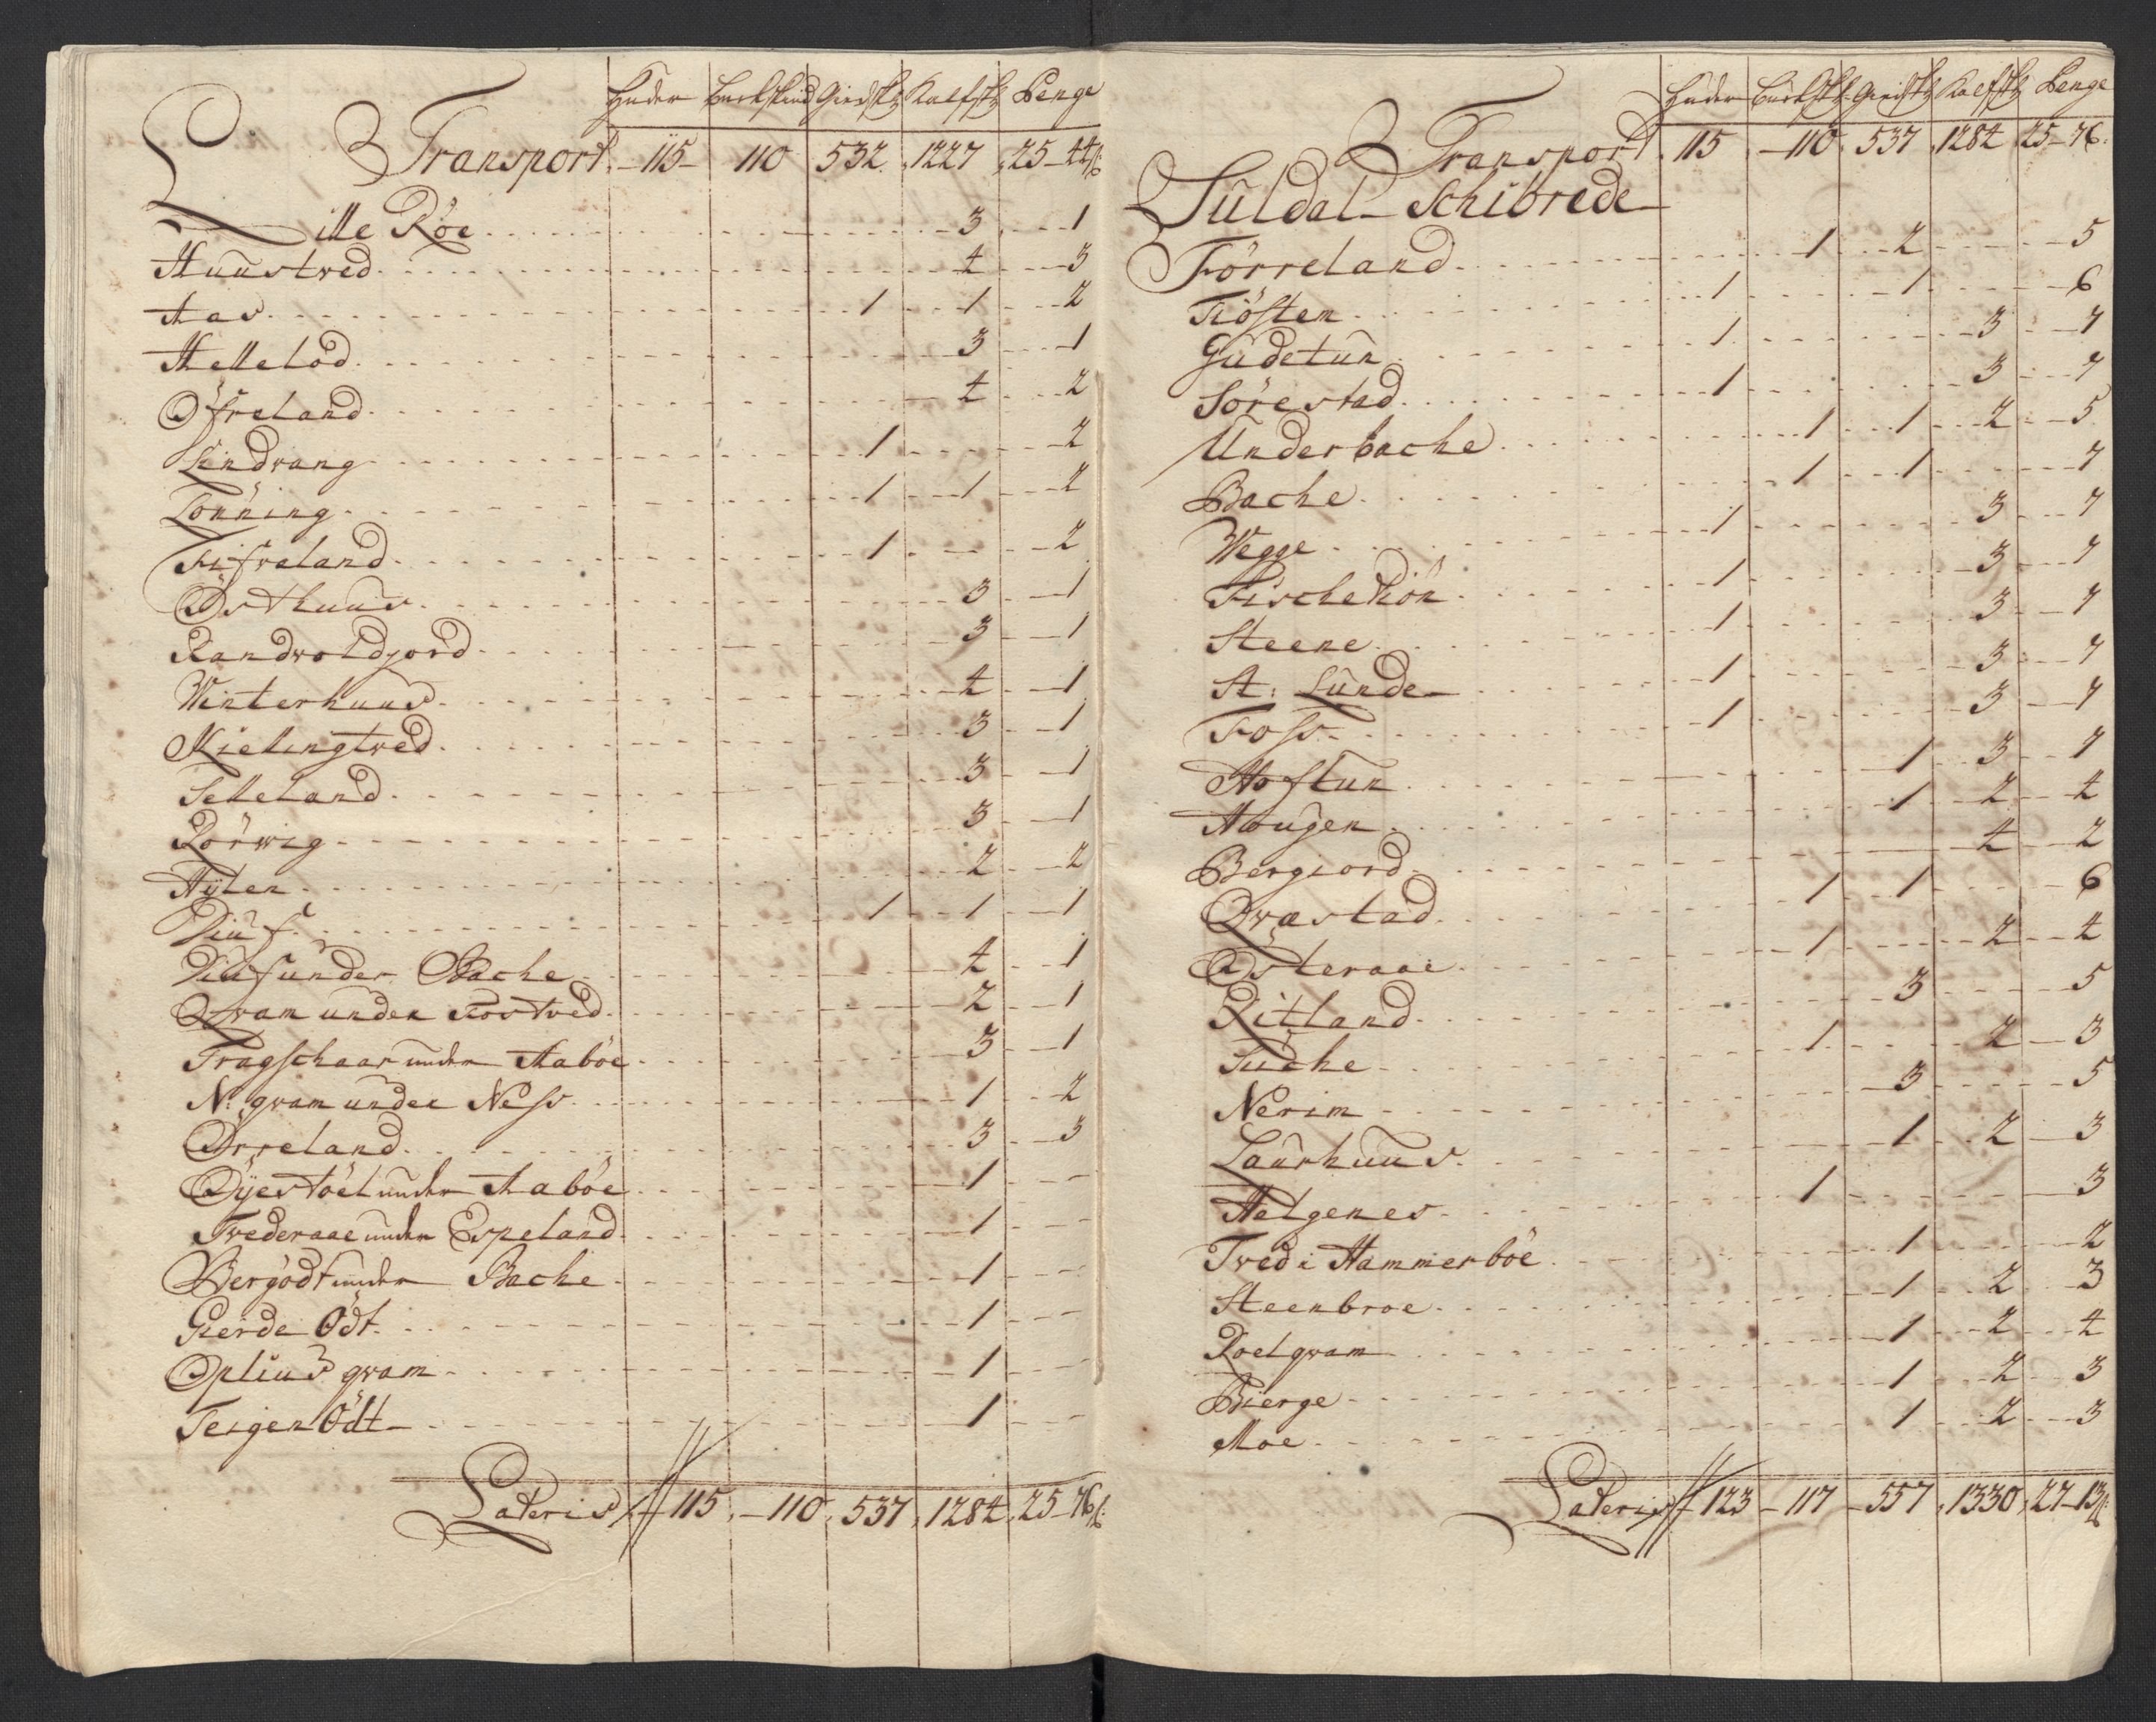 Huder Buckskind Giedsk Kalfsk Penge
Transport. 115 110 532 1227 25 - 44 ß
Lille Röe 3 1
Huustved 4 3
Aas 1 1 2
Hellelod 3 1
Öfreland 4 2
Lindvang 1 2
Lönning 1 1 2
Fifreland 1 2
Östhuus 3 1
Randvoldjord 3 1
Winterhuus 4 1
Kielingtved 3 1
Selleland 3 1
Rörwig 3 1
Hylen 2 2
Diuf 1 1 1
Diufunder Bache 4 1
Qvam under Rostved 2 1
Tragschaar under Aaböe 3 1
N: qvam under Ness 1 2
Orreland 3 3
Öyestöel under Aaböe 1
Tvederaae under Espeland 1
Bergödt under Bache 1
Gierde Ödt 1
Opliusqvam 1
Teigen Ödt 1
Lateris 115 110 537 1284 25 - 76 ß

Huder Bucksk Giedsk Kalfsk Penge
Transport 115 110 537 1284 25 - 76
Suldal Schibrede
Förreland 1 2 5
Fiösten 1 1 6
Gudetun 1 3 7
Sörestad 1 3 7
Underbache 1 1 2 5
Bache 1 1 7
Wegge 1 3 7
Fischekiön 1 3 7
Steene 1 3 7
St: Lunde 1 3 7
Foss 1 3 7
Hoftun 1 3 7
Haugen 1 2 4
Bergiord 4 2
Qvæstad 1 1 6
Østeraae 1 2 4
Ritland 3 5
Suche 1 2 3
Nerim 3 5
Laurhuus 1 2 3
Helgenes 1 3
Tved i Hammerböe 1 2
Steenbroe 1 2 3
Roelqvam 1 2 4
Bierge 1 2 3
Moe 1 2 3
Lateris 123 117 557 1330 27 - 13 ß